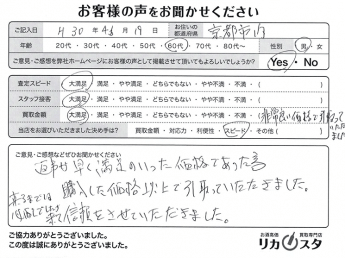 お客様の声をお聞かせください
ご記入日 H 30 年 4 月 19 日 お住いの都道府県 京都市
年齢 20代・30代・40代・50代・60代・70代・80代〜 性別 男・女
ご意見・ご感想を弊社ホームページにお客様の声として掲載させて頂いてもよろしいでしょうか? Yes・No
査定スピード 大満足・満足・やや満足・どちらでもない・やや不満・不満・( )
スタッフ接客 大満足・満足・やや満足・どちらでもない・やや不満・不満・( )
買取金額 大満足・満足・やや満足・どちらでもない・やや不満・不満・(非常に良い価格で
当店をお選びいただきました決め手は? 買取金額・対応力・利便性・スピード・その他( )
ご意見・ご感想などぜひお聞かせください
返事が早く満足のいった価格であった
購入した価格以上で引取っていただきました。
来るまでは
来て信頼をさせていただきました。
ご協力ありがとうございました。
この度は誠にありがとうございました。
お酒高価買取専門店
リカスタ